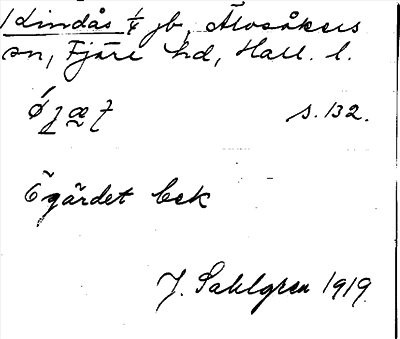 /Lindås 1/4 jb, Älvsåkers
sn, Fjäre hd, Hall. l.
s. 132.
Ögärdet bek
J. Sahlgren 1919.